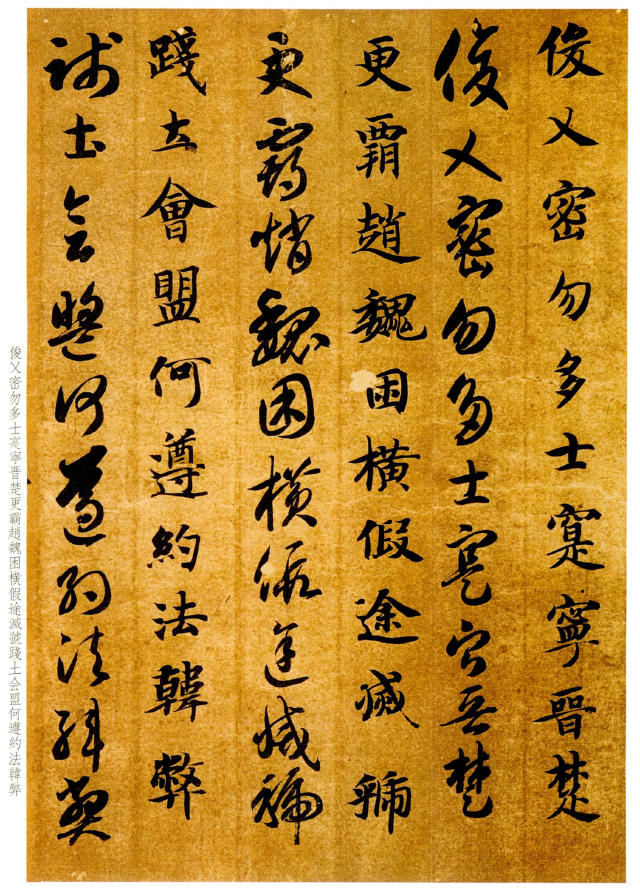 俊乂密勿多士寔寧晉楚
俊乂密勿多士寔寧晉楚
更霸趙魏困橫假途滅虢
更霸趙魏困橫假途滅虢
踐土會盟何遵約法韓弊
踐土會盟何遵約法韓弊
俊乂密勿多士寔寧晋楚更霸趙魏困橫假途滅號踐土会盟何遵約法韓弊